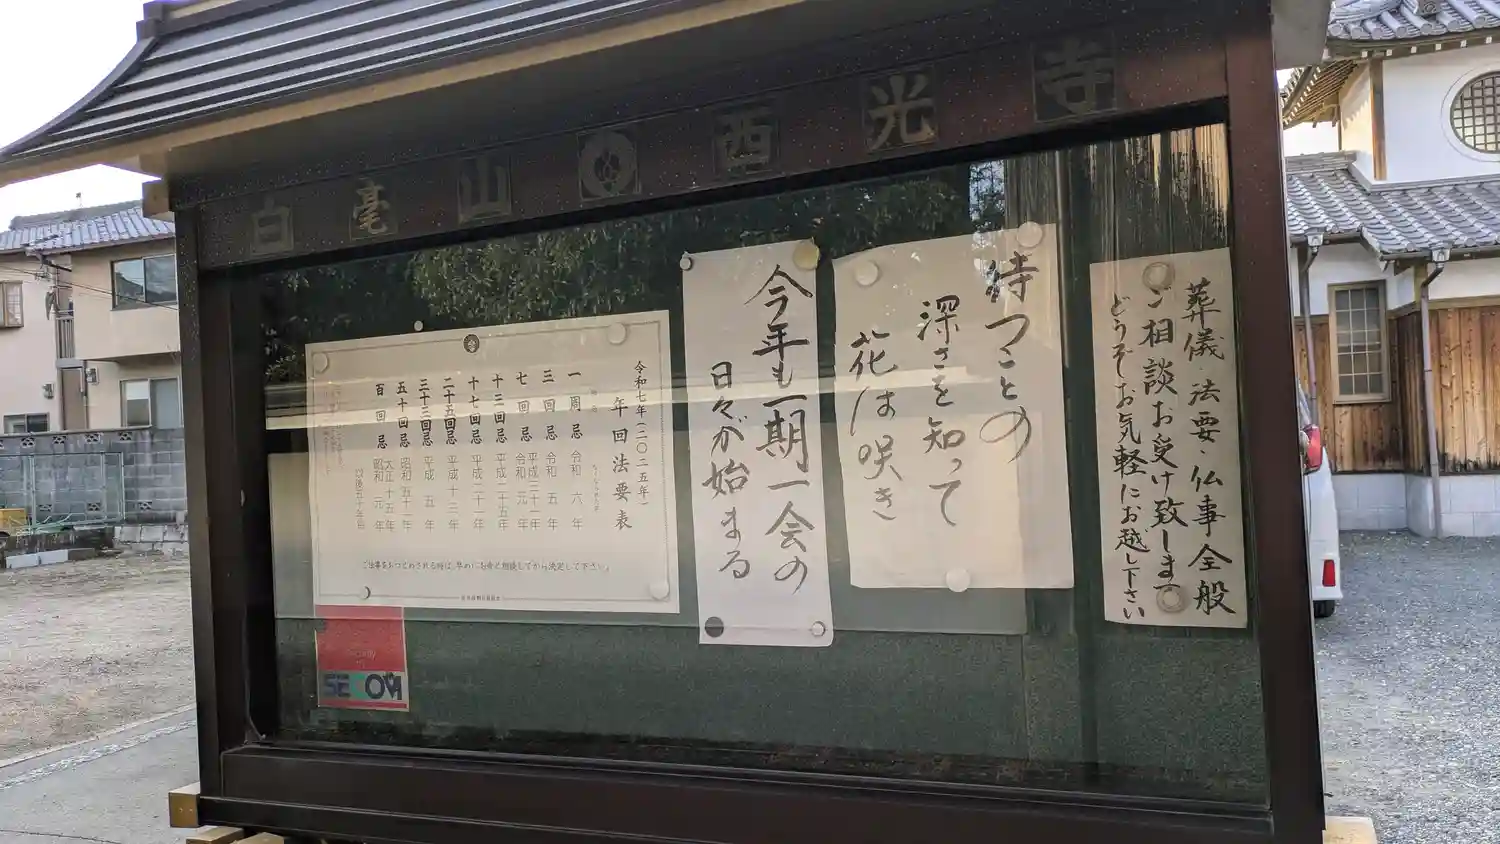 白毫山 西光寺
葬儀・法要・仏事全般
ご相談お受け致します
どうぞお気軽にお越し下さい
待つことの
深さを知って
花は咲き
今年も一期一会の
日々が始まる
令和七年(二〇二五年)
年回法要表
一周忌 令和六年
三回忌 令和五年
七回忌 令和元年 平成三十一年
十三回忌 平成二十五年
十七回忌 平成二十一年
二十五回忌 平成十三年
三十三回忌 平成五年
五十回忌 昭和五十一年
百回忌 昭和元年 大正十五年
以後五十年毎
SECOM